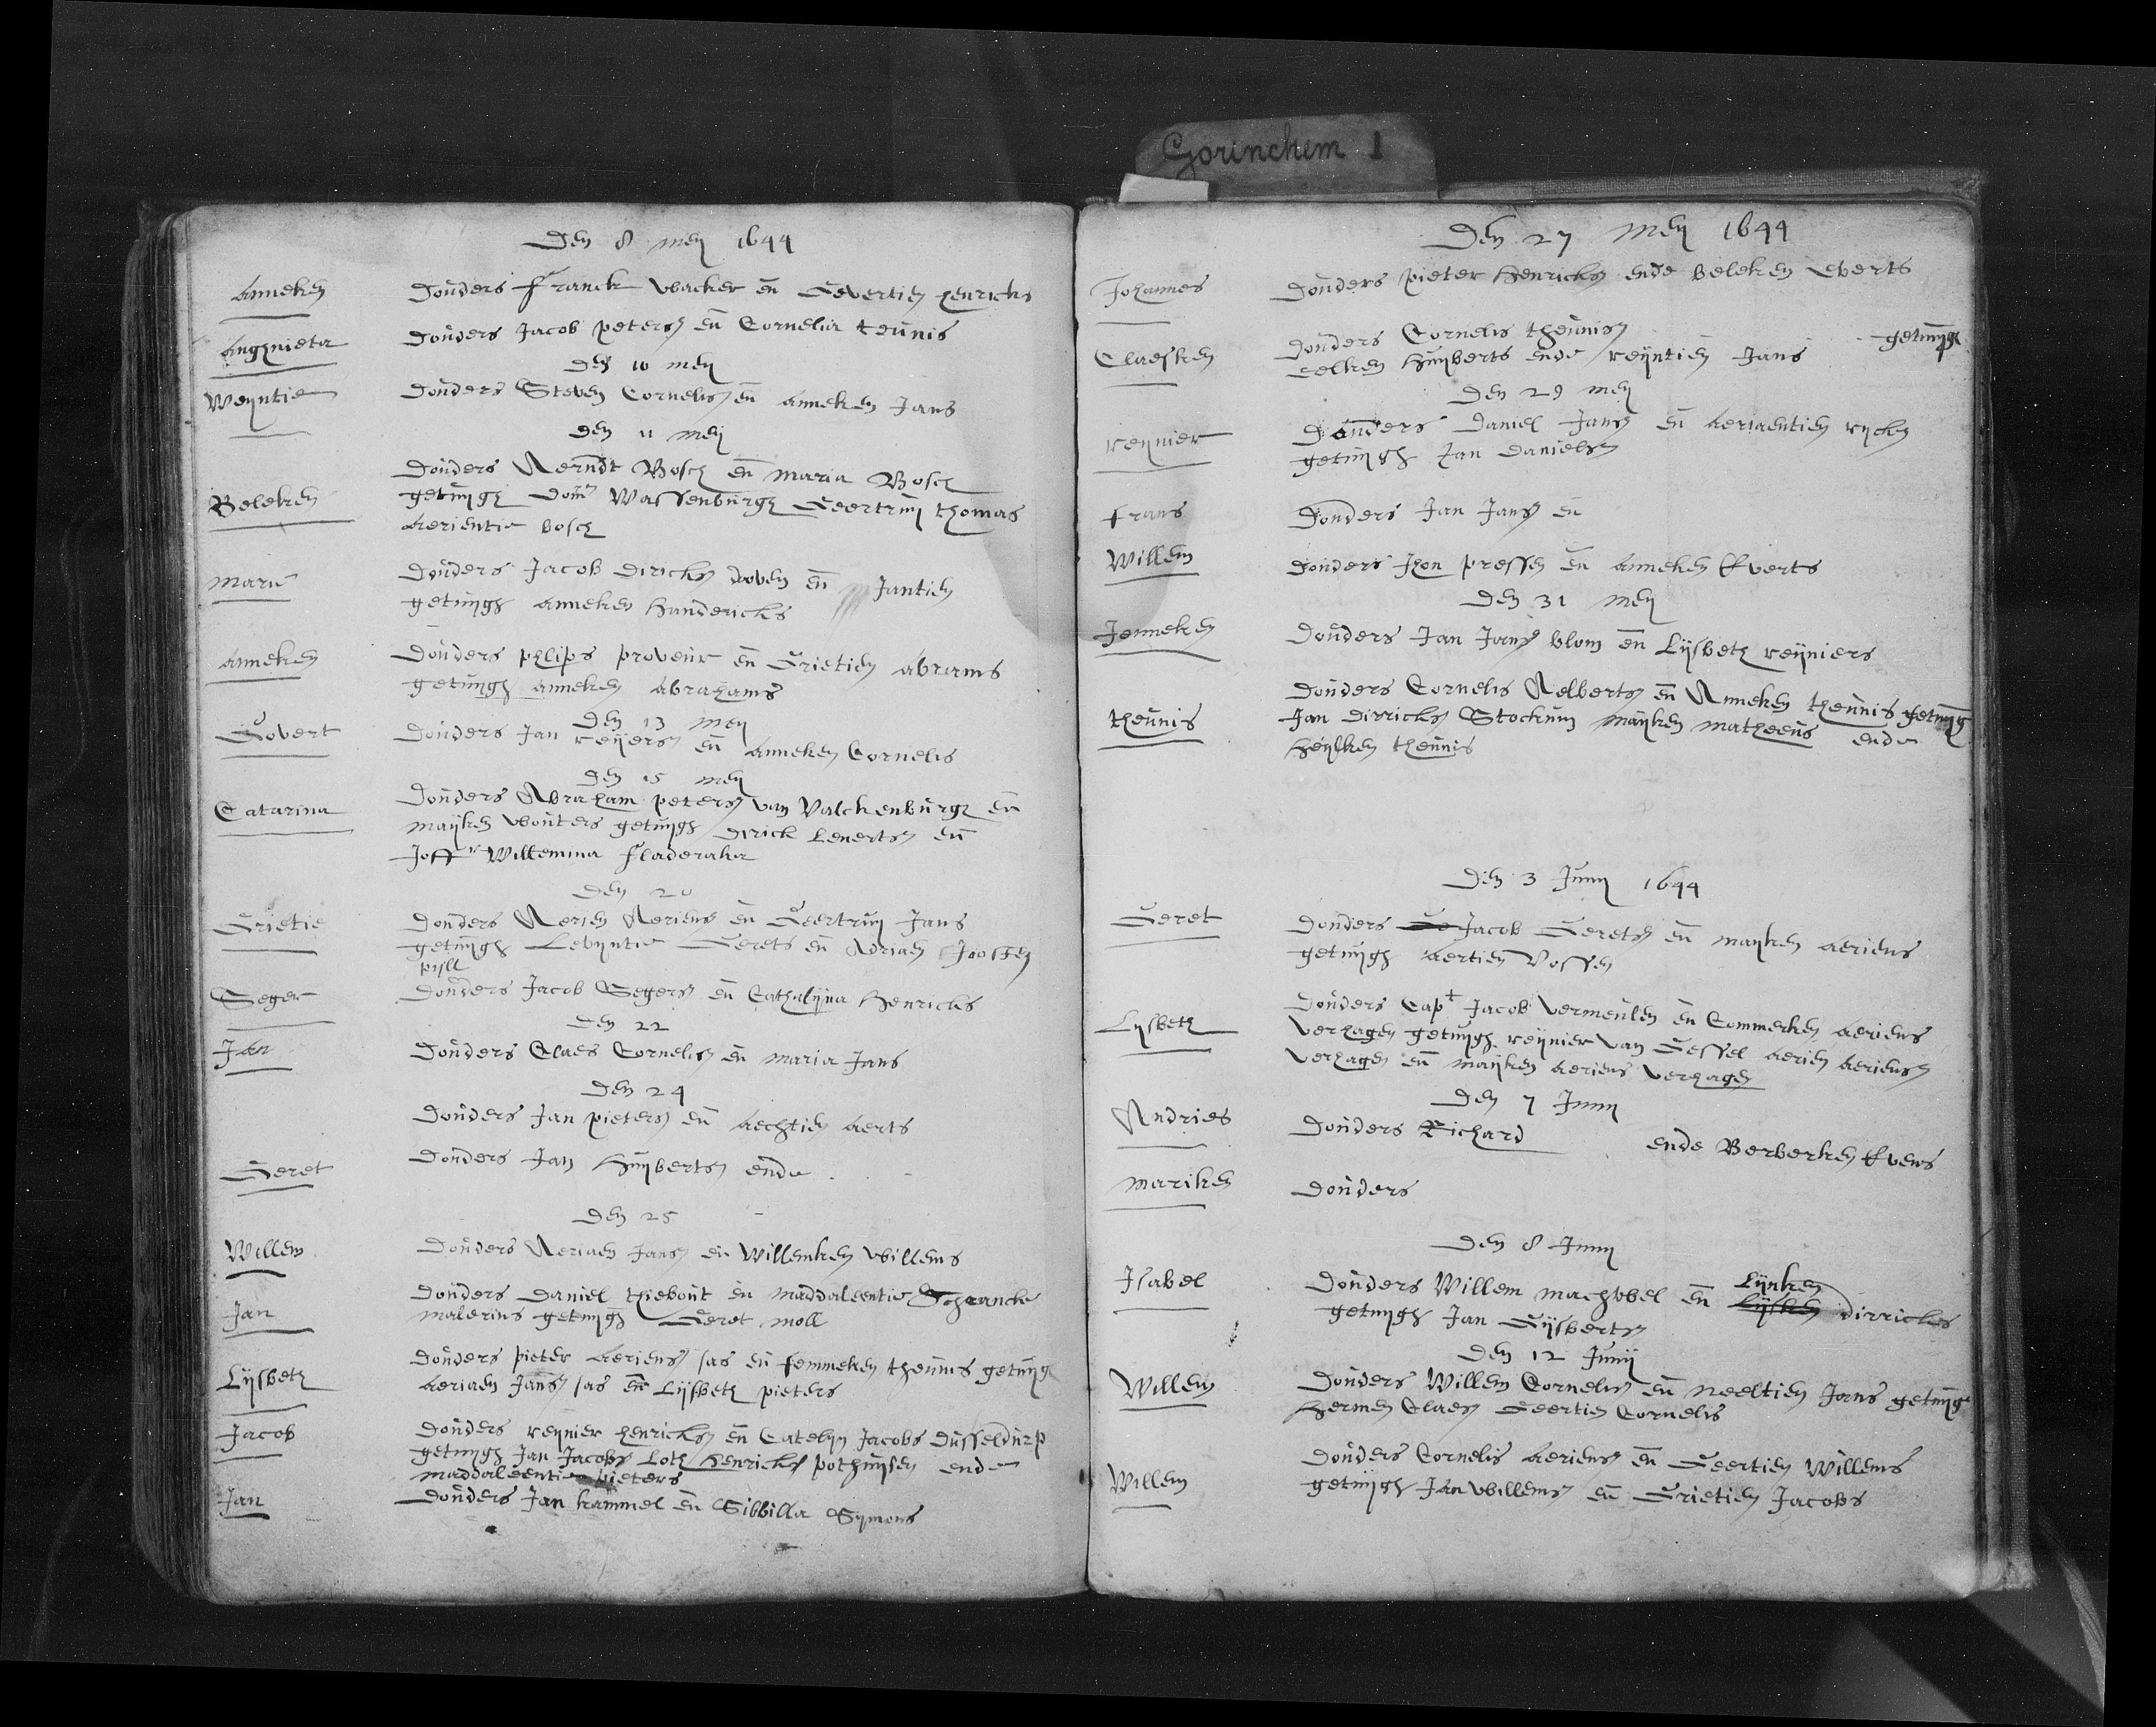 Gorinchem 1
Den 8 meij 1644
Anneken
Douders Franck Wacker en Gevertien henricks
Anghnieta
Douders Jacob peters en Cornelia teunis
Den 10 meij
Weyntie
Douders Steven Cornelis en Anneken Jans
Den 11 meij
Beleken
Douders Aerndt Bosch en Maria Bosch
getuygh Dom Wassenburgh Geertruij thomas
Aerientie bosch
Marie
Douders Jacob Diricks doven en Jantien
getuygh Anneken Handericks
Anneken
Douders philips proveur en Grietien Abrams
getuygh Anneken Abrahams
Den 13 meij
Govert
Douders Jan reijers en Anneken Cornelis
Den 15 meij
Catarina
Douders Abraham peters van Valckenburgh en
maijken wouters getuygh Dirick Lenerts en
Joffr Willemina Fladeraka
Den 20
Grietie
Donders Aerien Aeriens en Geertruij Jans
getuygh Levyntie Gerets en Adriaen Joosten
pijll
Seger
Donders Jacob Segers en Cathalijna Henricks
Den 22
Jan
Douders Claes Cornelis en Maria Jans
Den 24
Douders Jan pieters en Aechtien Aerts
Geret
Douders Jan Huyberts ende
Den 25
Willem
Douders Aeriaen Jans en Willemken Willems
Jan
Douders Daniel thiebout en Maddaleentie Schrancke
malerius getuygh Geret moll
Lijsbeth
Douders pieter Aeriens sas en femmeken theunis getuyg
Aeriaen Jans sas en Lijsbeth pieters
Jacob
Douders reynier henricks en Catelyn Jacobs Dusseldurp
getuygh Jan Jacobs Loth Henricks pothuysen ende
Maddaleentie pieters
Jan
Douders Jan kammel en Sibbilla Symons
Den 27 Meij 1644
Johannes
Donders pieter Henricks ende Beleken Everts
Claesken
Donders Cornelis theunis getuygh
Eelken Huyberts ende reyntien Jans
Den 29 meij
reynier
Douders Daniel Jans en Aeriaentien rycks
getuygh Jan Daniels
Frans
Donders Jan Jans en
Willem
Donders Jhon pressen en Anneken Everts
Den 31 meij
Jenneken
Douders Jan Jans blom en Lijsbeth reyniers
theunis
Douders Cornelis Aelberts en Anneken theunis getuyg
Jan Dirricks Stockum maijken matheeus ende
Heylken theunis
Den 3 Junij 1644
Geret
Donders Ge Jacob Gerets en maijken Aeriens
getuygh Aertien Vossen
Lysbeth
Donders Capt Jacob Vermeulen en Commerken Aeriens
Verhagen getuygh reynier van Gessel Aerien Aeriens
Verhagen en maijken Aeriens Verhagen
Den 7 Junij
Andries
Donders Richard ende Berberken Evens
Mariken
Donders
Den 8 Junij
Isabel
Lijnken
Donders Willem machwel en Lijsken dirricks
getuygh Jan Gijsberts
Den 12 Junij
Willem
Donders Willem Cornelis en Neeltien Jans getuyg
Hermen Claes Geertien Cornelis
Willem
Donders Cornelis Aeriens en Geertien Willems
getuygh Jan Willems en Grietien Jacobs